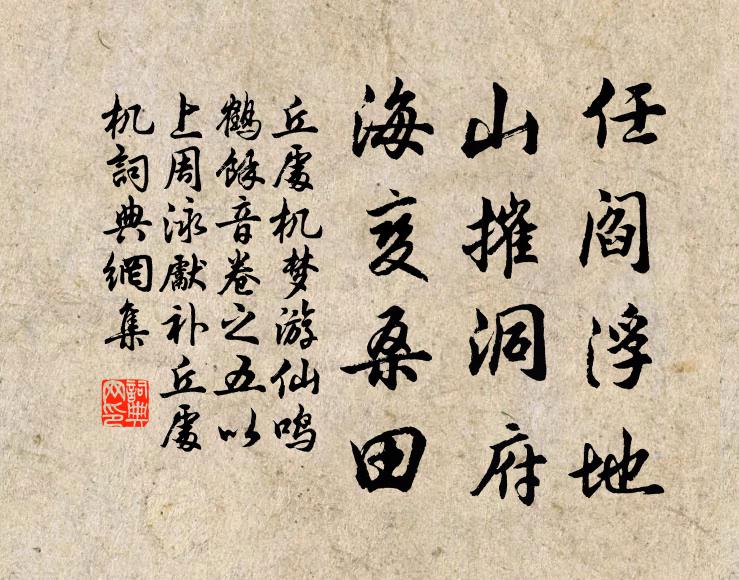 任阎浮地
山摧洞府
海变桑田
丘處机梦游仙鸣
鹤餘音卷之五以
上周泳獻补丘處
机詞典網集
詞典
网印